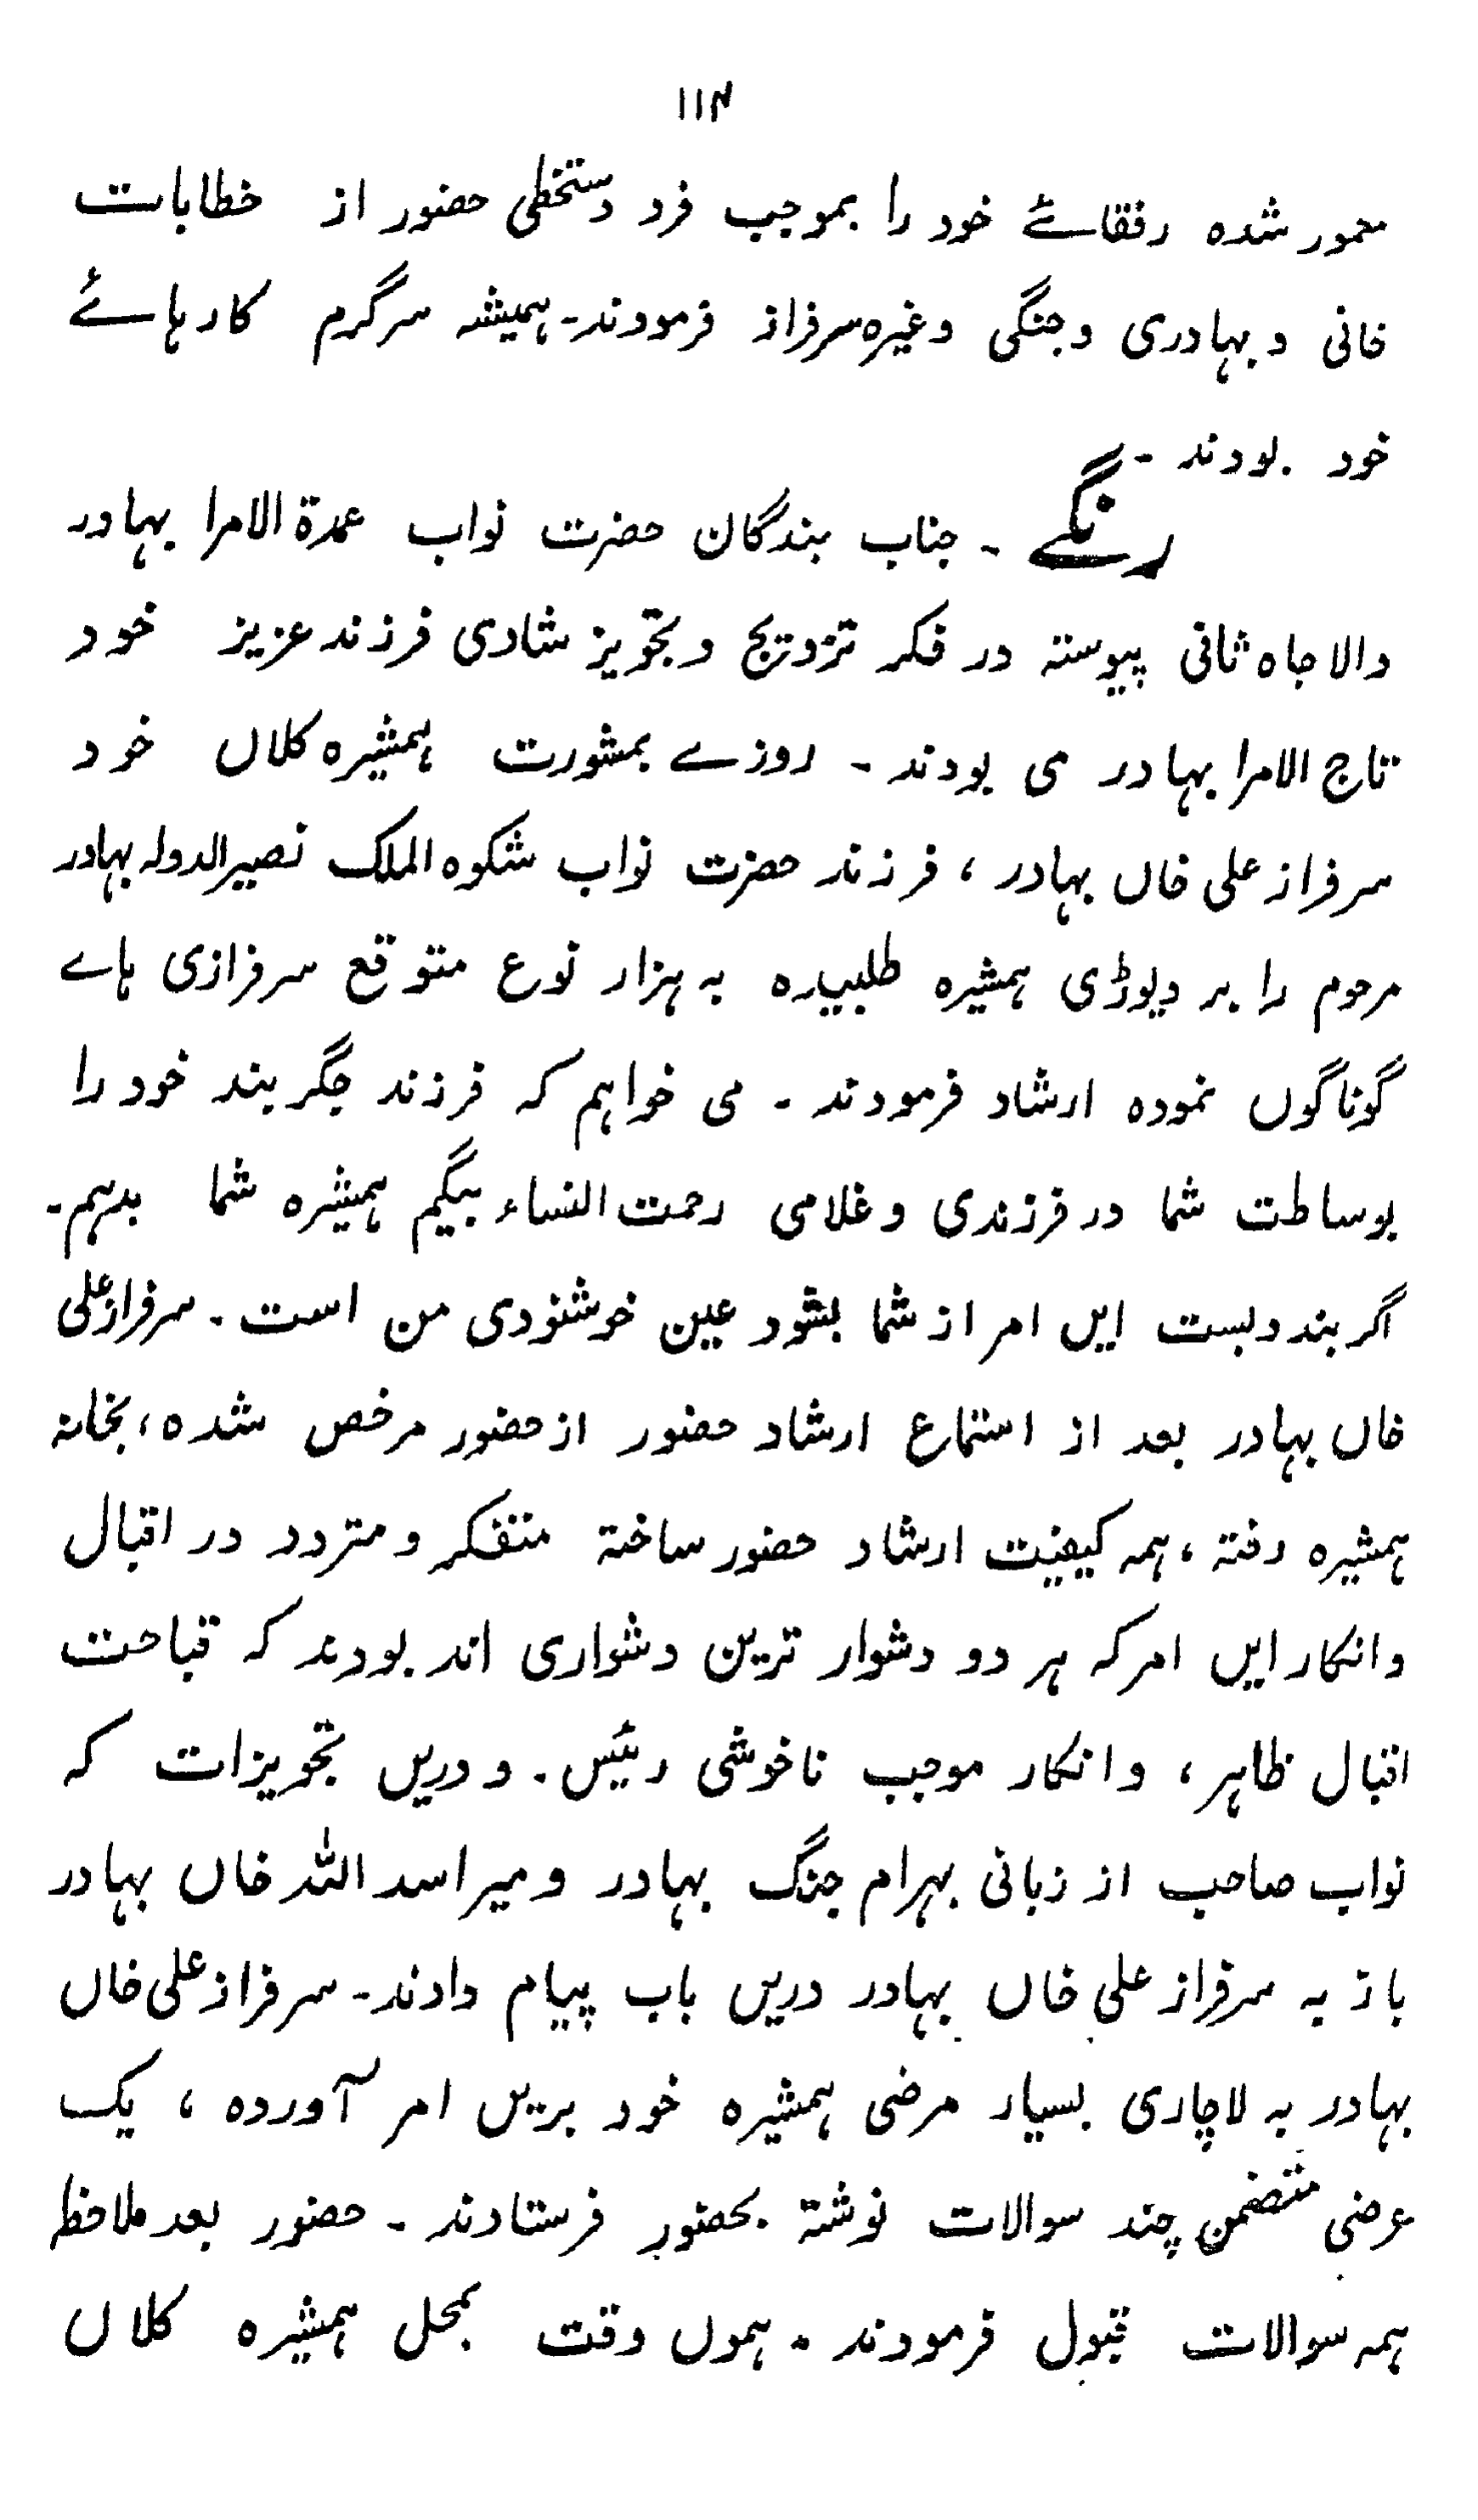 ۱۱۴
معمور شده رفقائے خود را بموجب فرد دستخطی حضور از خطابات
خانی و بہادری و جنگی وغیره سرفراز فرمودند۔ ہمیشہ سرگرم کارہائے
خود بودند ۔
رنگے ۔ جناب بندگان حضرت نواب عمدة الامرا بہادر
والا جاه ثانی پیوستہ در فکر تزویج و تجویز شادی فرزند عزیز خود
تاج الامرا بہادر می بودند ۔ روزے بمشورت ہمشیره کلاں خود
سرفراز علی خاں بہادر ، فرزند حضرت نواب شکوه الملک نصیر الدولہ بہادر
مرحوم را بر دیوڑی ہمشیره طلبیده بہ ہزار نوع متوقع سرفرازی ہاے
گوناگوں نموده ارشاد فرمودند ۔ می خواہم کہ فرزند جگر بند خود را
بوساطت شما در فرزندی و غلامی رحمت النساء بیگم ہمشیره شما بدہم۔
اگر بندوبست ایں امر از شما بشود عین خوشنودی من است ۔ سرفراز علی
خاں بہادر بعد از استماع ارشاد حضور از حضور مرخص شده ، بخانہ
ہمشیره رفتہ ، ہمہ کیفیت ارشاد حضور ساختہ متفکر و متردد در اقبال
و انکار ایں امر کہ ہر دو دشوار ترین دشواری اند بودند کہ قباحت
اقبال ظاہر ، و انکار موجب ناخوشی رئیس ۔ و دریں تجویزات کہ
نواب صاحب از زبانی بہرام جنگ بہادر و میر اسد اللہ خاں بہادر
باز بہ سرفراز علی خاں بہادر دریں باب پیام دادند۔ سرفراز علی خاں
بہادر بہ لاچاری بسیار مرضی ہمشیره خود بریں امر آورده ، یک
عرضی متضمن چند سوالات نوشتہ بحضور فرستادند ۔ حضور بعد ملاحظہ
ہمہ سوالات قبول فرمودند ۔ ہموں وقت بمحل ہمشیره کلاں